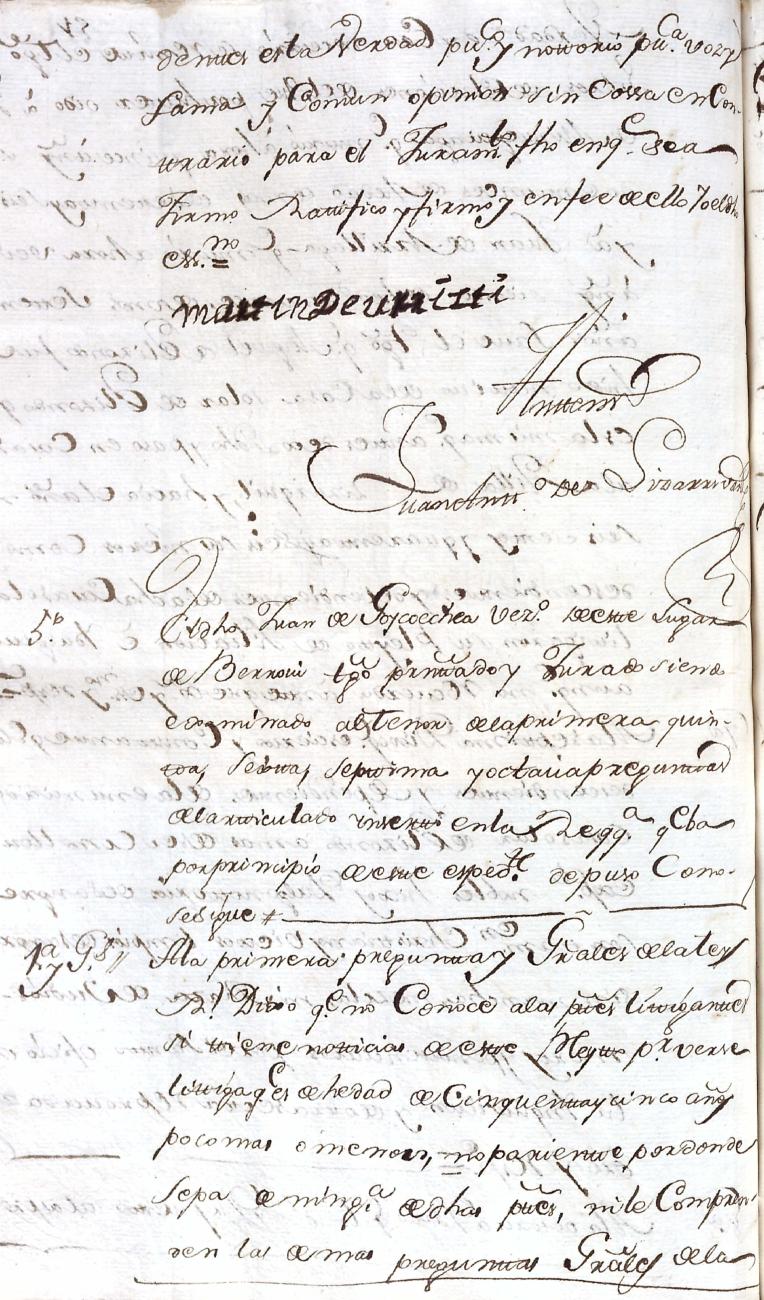 demas es la Verdad puca. y notorio puca. voz y
fama y Comun opinion sin Cossa en Con-
trario para el Juramto. fho en qe. se a
firmo Ratifico y firmo y en fee de ello Yo el dho
essno. =
martin De urriSti
Antemi
Juan Antto. de Lizarri
5º
El dho Juan de Goycoechea vezo. de este Lugar
de Berroui tgo. prntado y Jurado siendo
examinado al tenor de la primera quin-
ta, sexta, septima y octaua preguntas
del articulado inserto en la Reqqa. qe ba
por principio de este espedte. depuso Como
se sigue
1ª y Gs.
A la primera pregunta y Grales de la ley
Rdo. Dixo qe. no Conoce a las ptes litigantes
si tiene noticias de este Pleyto pr. verse
litiga qe es de hedad de Cinquenta y cinco años
poco mas o menos, no pariente por donde
sepa de ninga. de dhas ptes, ni le Compren-
den las demas preguntas Grales de la